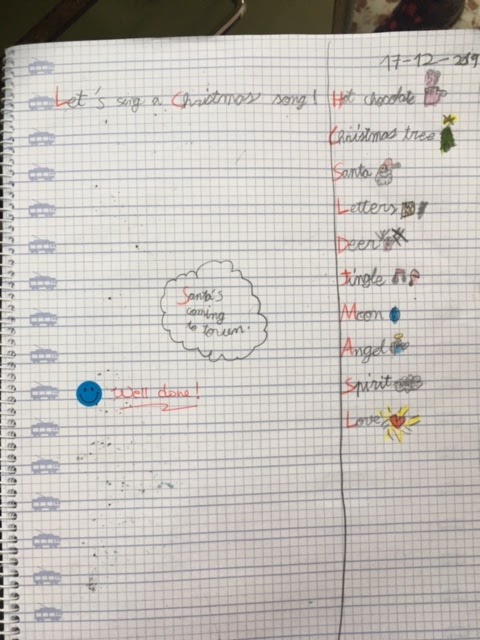 17-12-2019
Let's sing a Christmas song!
Hot chocolate
Christmas tree
Santa
Letters
Deer
Jingle
Moon
Angel
Spirit
Love
Santa's
coming
to town.
Well done!